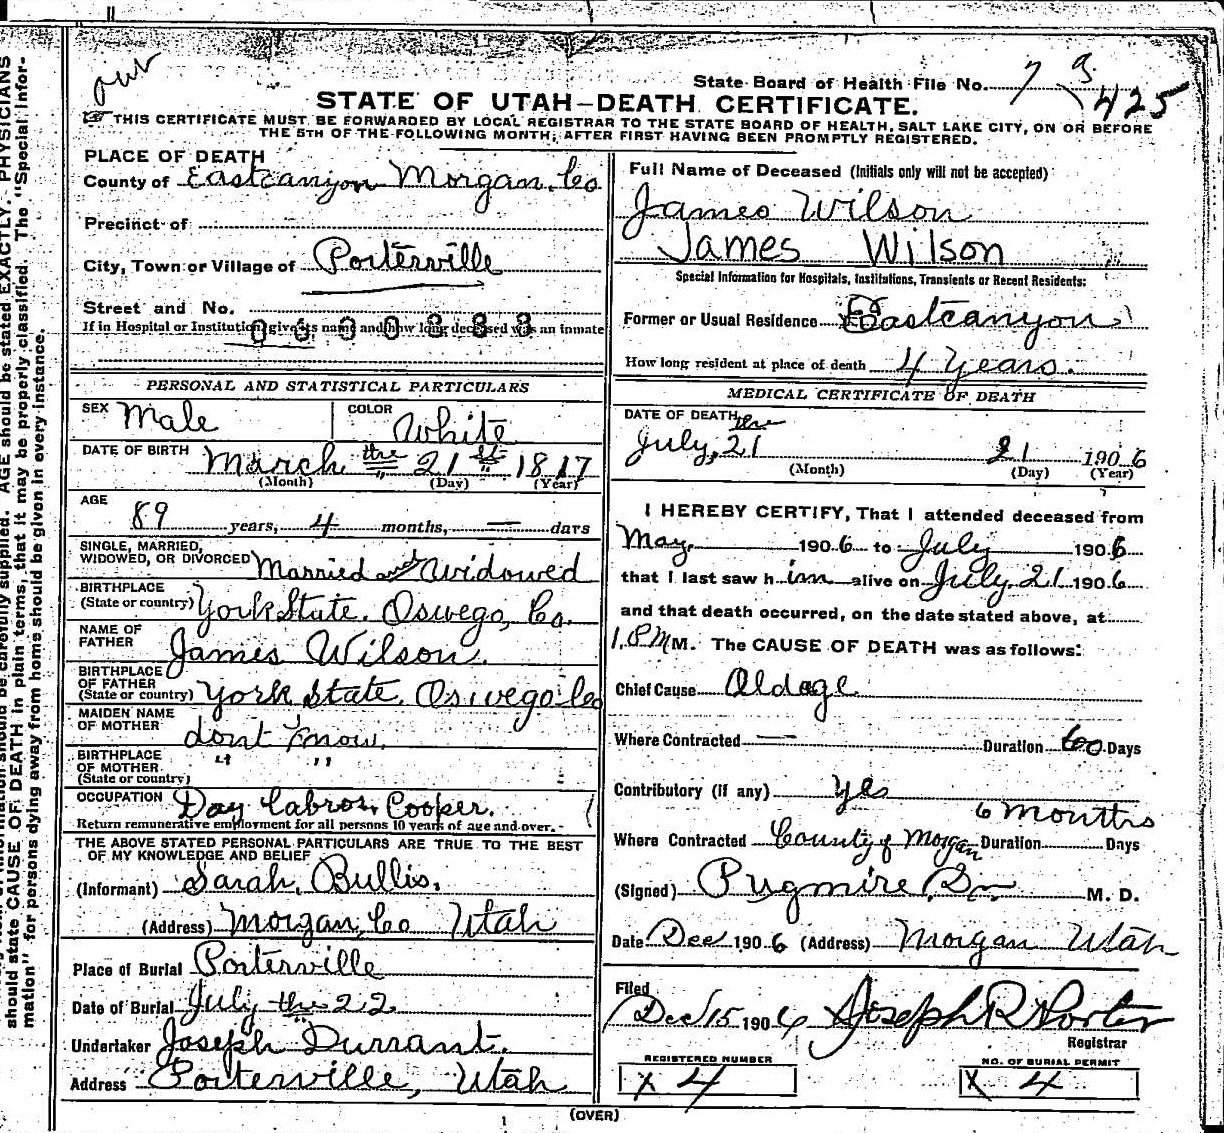 our
State Board of Health File No. 7 93
425
STATE OF UTAH—DEATH CERTIFICATE.
THIS CERTIFICATE MUST BE FORWARDED BY LOCAL REGISTRAR TO THE STATE BOARD OF HEALTH, SALT LAKE CITY, ON OR BEFORE
THE 5TH OF THE FOLLOWING MONTH, AFTER FIRST HAVING BEEN PROMPTLY REGISTERED.
PLACE OF DEATH
County of Eastcanyon Morgan. Co
Precinct of
City, Town or Village of Porterville
Street and No.
If in Hospital or Institution give its name and how long deceased was an inmate
PERSONAL AND STATISTICAL PARTICULARS
SEX Male COLOR White
DATE OF BIRTH March the 21st 1817
(Month) (Day) (Year)
AGE
89 years, 4 months, — days
SINGLE, MARRIED,
WIDOWED, OR DIVORCED Married and Widowed
BIRTHPLACE
(State or country) York State. Oswego, Co.
NAME OF
FATHER James Wilson.
BIRTHPLACE
OF FATHER
(State or country) York State. Oswego Co
MAIDEN NAME
OF MOTHER dont know.
BIRTHPLACE
OF MOTHER " "
(State or country)
OCCUPATION Day Labror, Cooper.
Return remunerative employment for all persons 10 years of age and over.
THE ABOVE STATED PERSONAL PARTICULARS ARE TRUE TO THE BEST
OF MY KNOWLEDGE AND BELIEF
(Informant) Sarah, Bullis,
(Address) Morgan, Co Utah
Place of Burial Porterville
Date of Burial July the 22.
Undertaker Joseph Durrant.
Address Porterville, Utah
Full Name of Deceased (Initials only will not be accepted)
James Wilson
James Wilson
Special Information for Hospitals, Institutions, Transients or Recent Residents:
Former or Usual Residence Eastcanyon
How long resident at place of death 4 years.
MEDICAL CERTIFICATE OF DEATH
DATE OF DEATH the
July, 21 21 1906
(Month) (Day) (Year)
I HEREBY CERTIFY, That I attended deceased from
May. 1906 to July 1906
that I last saw him alive on July. 21 1906
and that death occurred, on the date stated above, at
1. P M M. The CAUSE OF DEATH was as follows:
Chief Cause Oldage
Where Contracted — Duration 60 Days
Contributory (if any) yes
6 months
Where Contracted County of Morgan Duration Days
(Signed) Pugmire, Sr M. D.
Date Dec 1906 (Address) Morgan Utah
Filed
Dec 15 1906 Joseph R Porter
Registrar
REGISTERED NUMBER NO. OF BURIAL PERMIT
x 4 x 4
(OVER)
AGE should be stated EXACTLY. PHYSICIANS
should state CAUSE OF DEATH in plain terms, that it may be properly classified. The "Special Infor-
mation" for persons dying away from home should be given in every instance.